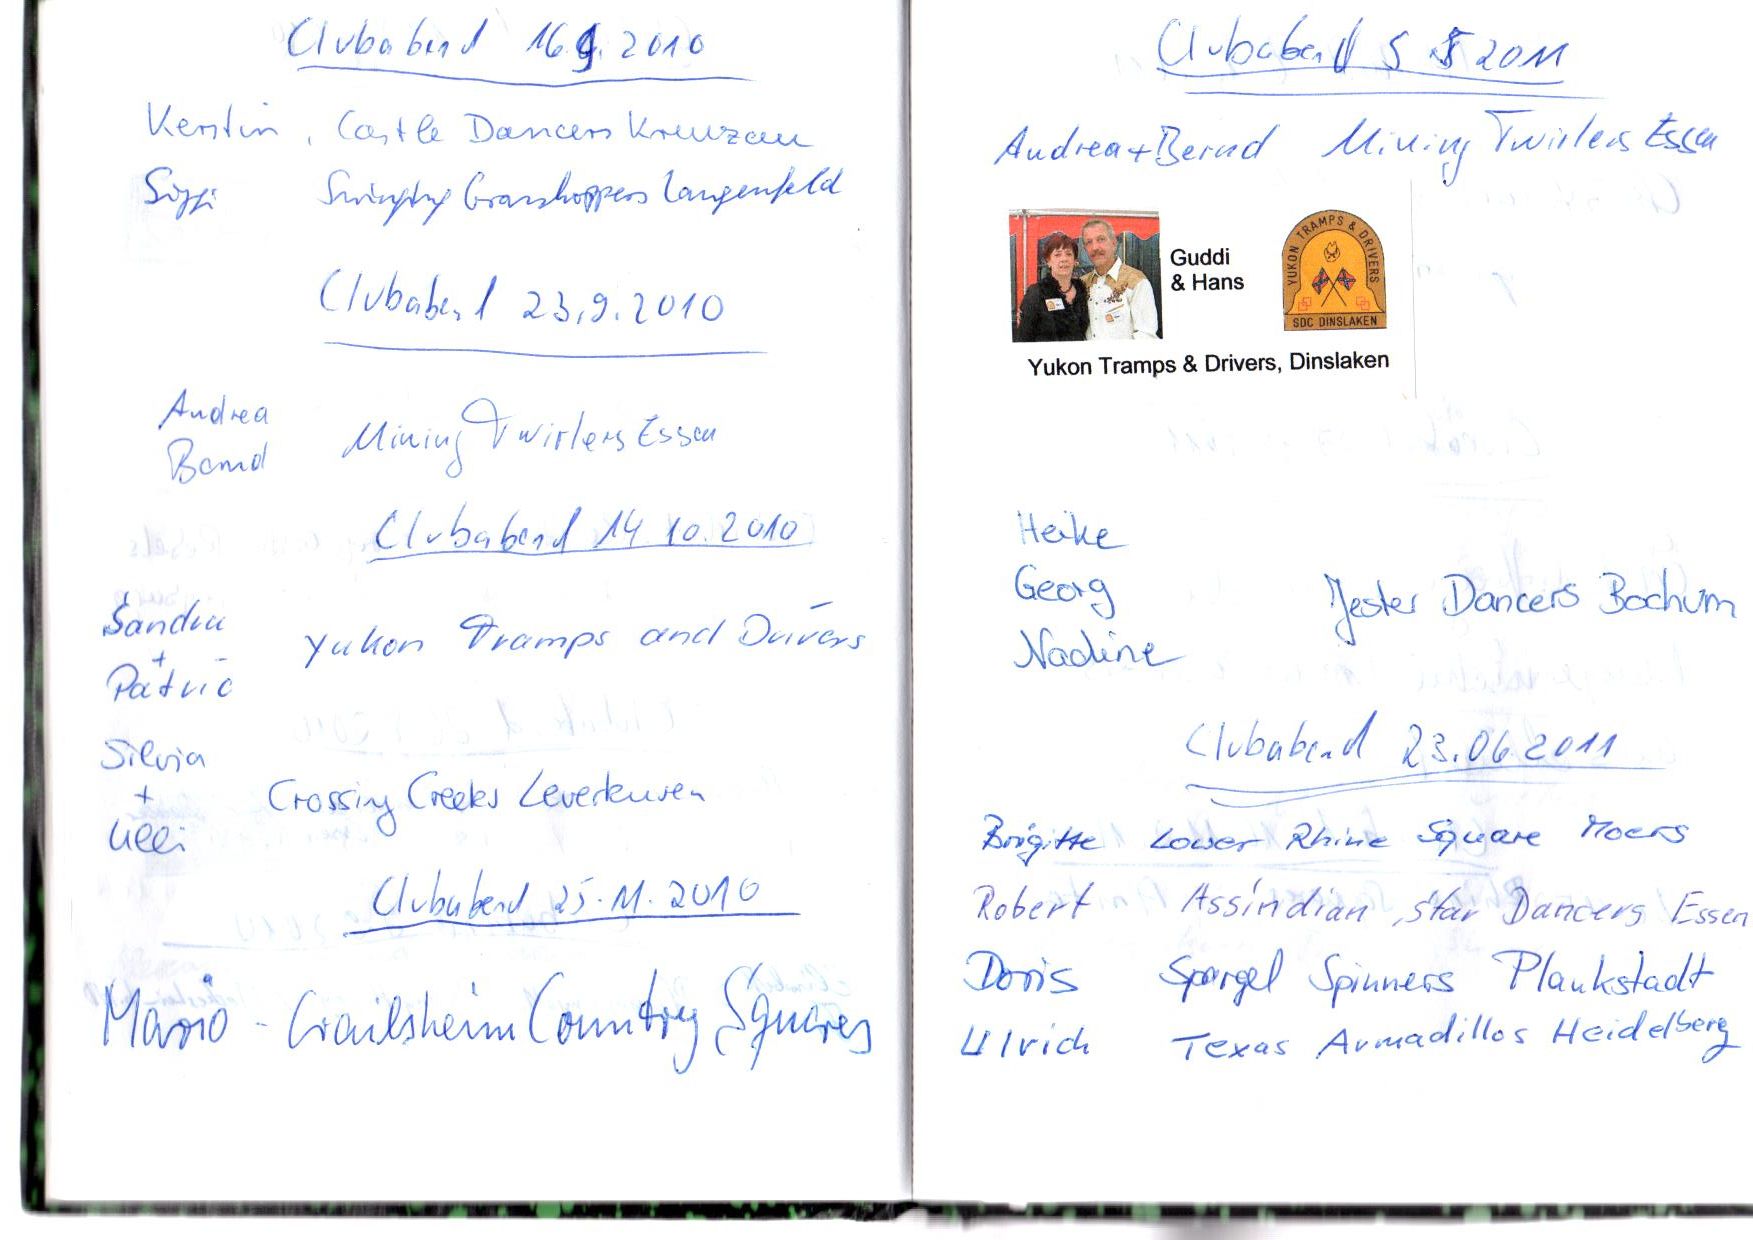 Clubabend 16.9.2010
Kerstin, Castle Dancers Kreuzau
Siggi Swinging Grasshoppers Langenfeld
Clubabend 23.9.2010
Andrea
Bernd Mining Twirlers Essen
Clubabend 14.10.2010
Sandra
+
Patric Yukon Tramps and Drivers
Silvia
+
Ulli Crossing Creeks Leverkusen
Clubabend 25.11.2010
Mario - Crailsheim Country Squares
Clubabend 5 5 2011
Andrea + Bernd Mining Twirlers Essen
Guddi
& Hans
YUKON TRAMPS & DRIVERS
SDC DINSLAKEN
Yukon Tramps & Drivers, Dinslaken
Heike
Georg Jester Dancers Bochum
Nadine
Clubabend 23.06.2011
Brigitte Lower Rhine Square Moers
Robert Assindian star Dancers Essen
Doris Spargel Spinners Plankstadt
Ulrich Texas Armadillos Heidelberg